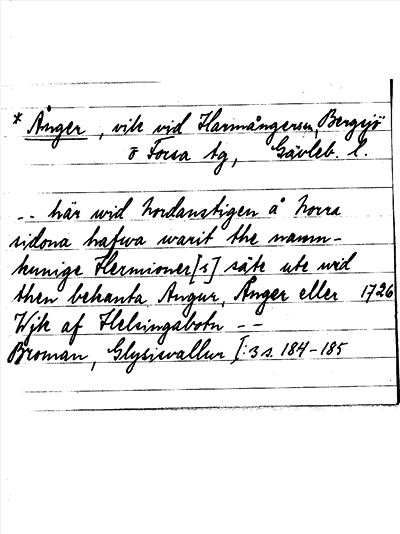 * Ånger, vik vid Harmångersån, Bergsjö
o Forsa tg, Gävleb. l.
-- här wid Nordanstigen å norra
sidona hafwa warit the namn-
kunige Hermioner[s] säte ute wid
then bekanta Angur, Ånger eller 1726
Wijk af Helsingabotn --
Broman, Glysisvallur I:3 s. 184-185